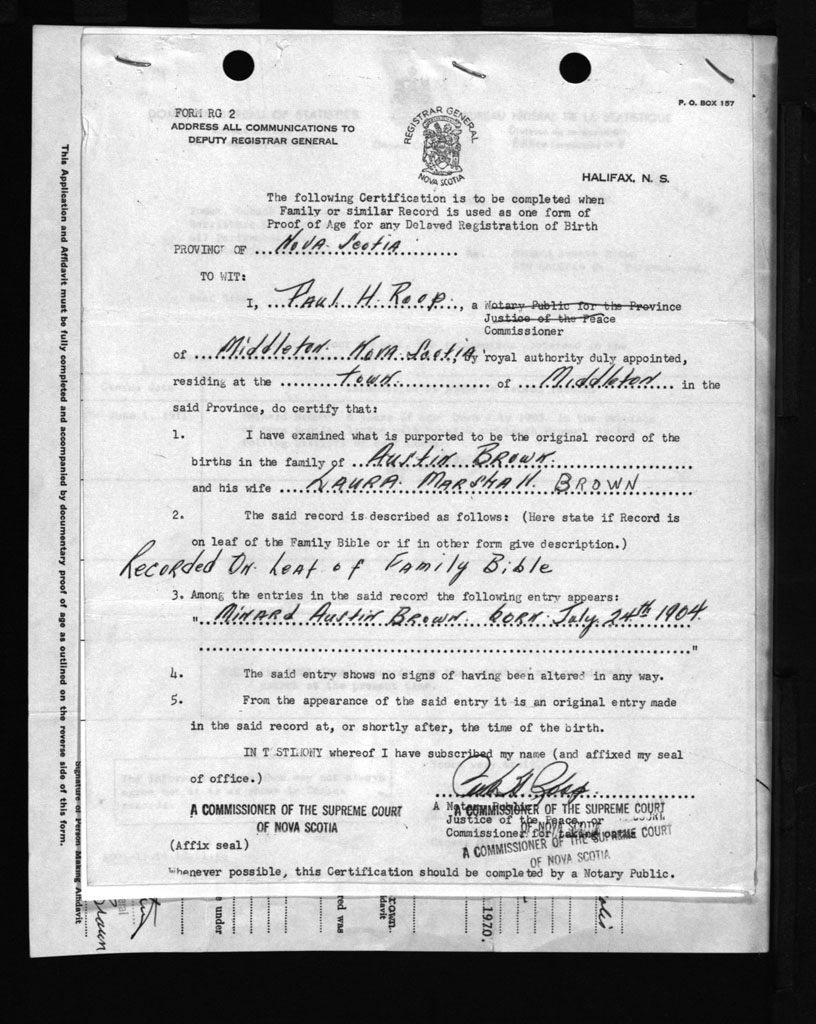 P. O. BOX 157
FORM RG 2
ADDRESS ALL COMMUNICATIONS TO
DEPUTY REGISTRAR GENERAL
REGISTRAR GENERAL
NOVA SCOTIA
HALIFAX, N. S.
The following Certification is to be completed when
Family or similar Record is used as one form of
Proof of Age for any Delayed Registration of Birth
PROVINCE OF Nova Scotia
TO WIT:
I, Paul H. Roop, a Notary Public for the Province
Justice of the Peace
Commissioner
of Middleton Nova Scotia, by royal authority duly appointed,
residing at the town of Middleton in the
said Province, do certify that:
1. I have examined what is purported to be the original record of the
births in the family of Austin Brown
and his wife LAURA MARSHALL BROWN
2. The said record is described as follows: (Here state if Record is
on leaf of the Family Bible or if in other form give description.)
Recorded On Leaf of Family Bible
3. Among the entries in the said record the following entry appears:
" Minard Austin Brown born July 24th 1904.
"
4. The said entry shows no signs of having been altered in any way.
5. From the appearance of the said entry it is an original entry made
in the said record at, or shortly after, the time of the birth.
IN T STIMONY whereof I have subscribed my name (and affixed my seal
of office.)
A COMMISSIONER OF THE SUPREME COURT
OF NOVA SCOTIA
(Affix seal)
A Notary Public
Justice of the Peace, or
Commissioner for
A COMMISSIONER OF THE SUPREME COURT
OF NOVA SCOTIA
A COMMISSIONER OF THE SUPREME COURT
OF NOVA SCOTIA
Whenever possible, this Certification should be completed by a Notary Public.
This Application and Affidavit must be fully completed and accompanied by documentary proof of age as outlined on the reverse side of this form.
Signature of Person Making Affidavit
Brown
e under
red was
rown
davit
1970.